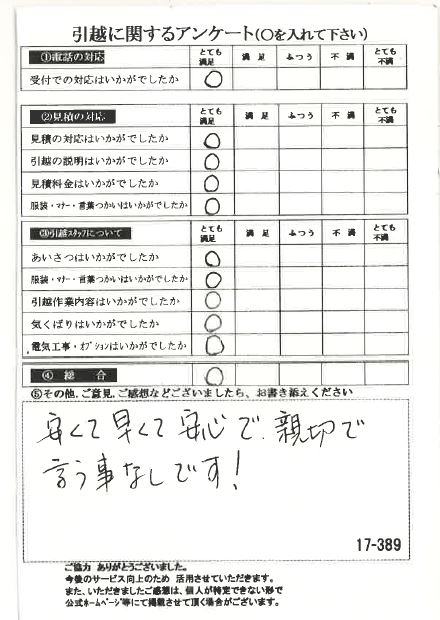 引越に関するアンケート(〇を入れて下さい)
①電話の対応 とても満足 満足 ふつう 不満 とても不満
受付での対応はいかがでしたか 〇
②見積の対応 とても満足 満足 ふつう 不満 とても不満
見積の対応はいかがでしたか 〇
引越の説明はいかがでしたか 〇
見積料金はいかがでしたか 〇
服装・マナー・言葉つかいはいかがでしたか 〇
③引越スタッフについて とても満足 満足 ふつう 不満 とても不満
あいさつはいかがでしたか 〇
服装・マナー・言葉つかいはいかがでしたか 〇
引越作業内容はいかがでしたか 〇
気くばりはいかがでしたか 〇
電気工事・オプションはいかがでしたか 〇
④総合 〇
⑤その他、ご意見、ご感想などございましたら、お書き添えください
安くて早くて安心で、親切で
言う事なしです!
17-389
ご協力 ありがとうございました。
今後のサービス向上のため 活用させていただきます。
また、いただきましたご感想は、個人が特定できない形で
公式ホームページ等にて掲載させて頂く場合がございます。